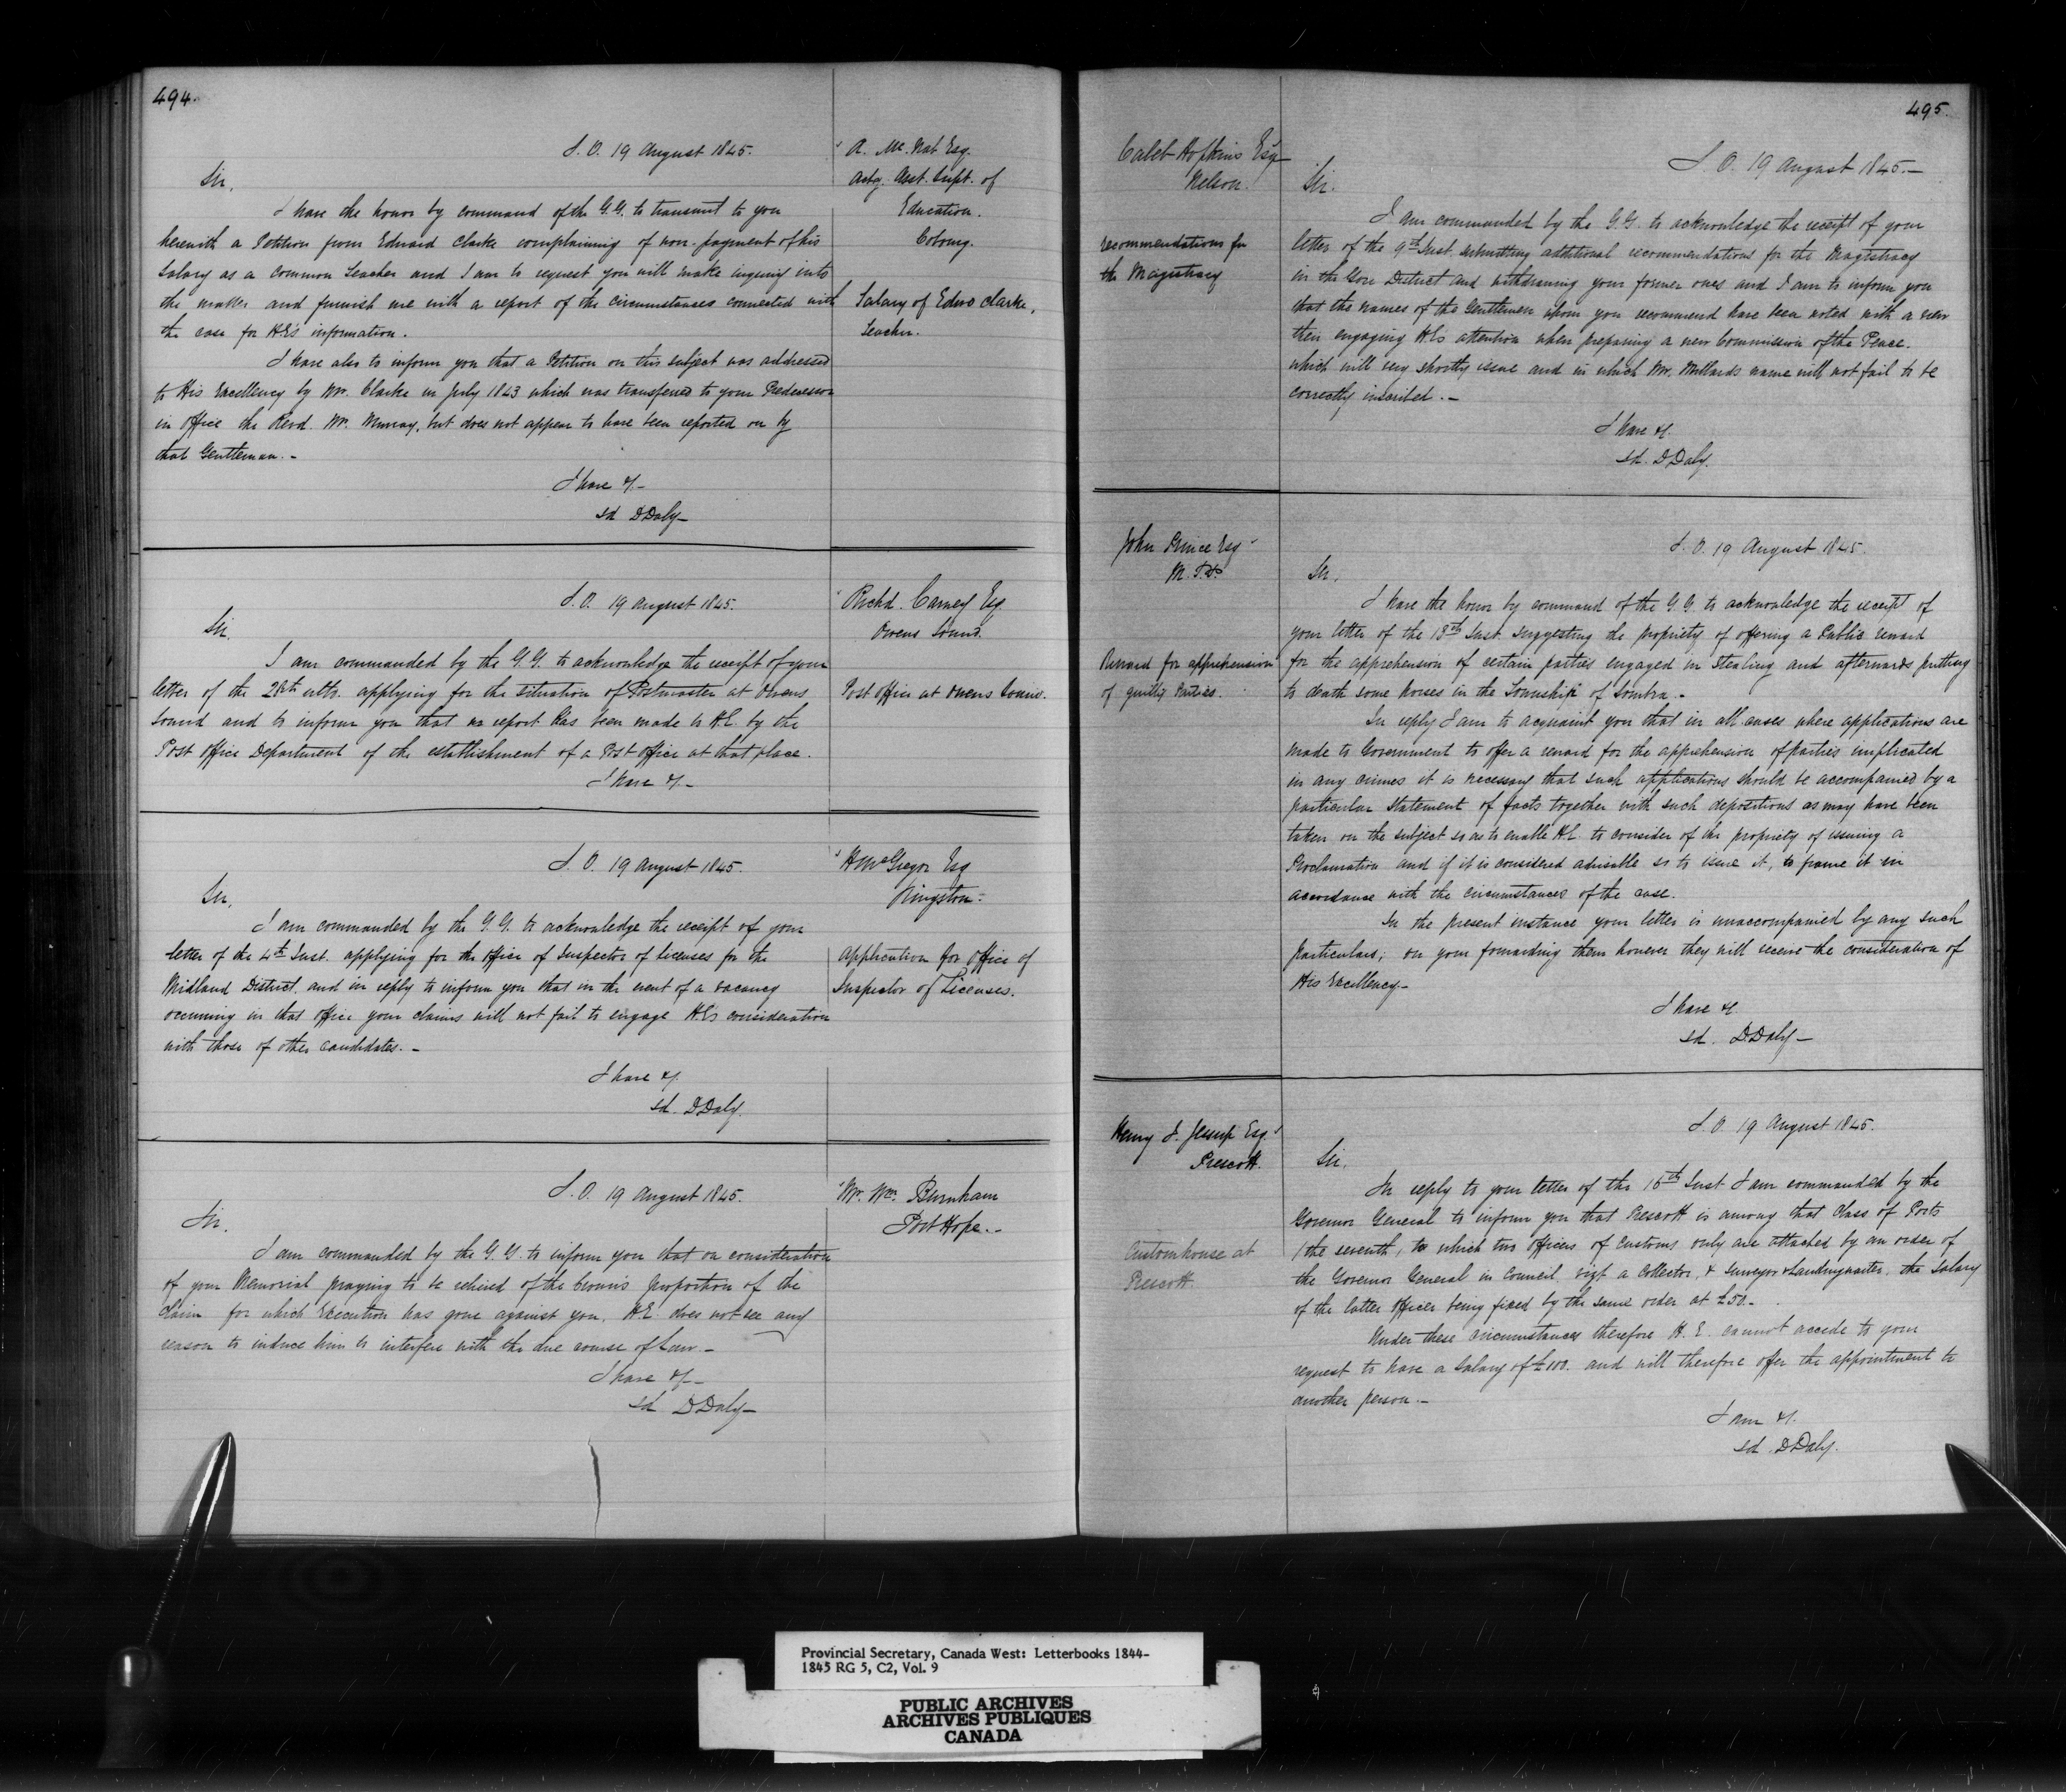 494.
S. O. 19 August 1845.
A. Mc.Nab Esq.
Actg. Asst. Supt. of
Education.
Cobourg.
Salary of Edwd Clarke,
Teacher.
Sir,
I have the honor by command of the G.G. to transmit to you
herewith a Petition from Edward Clarke complaining of non-payment of his
Salary as a Common Teacher and I am to request you will make inquiry into
the matter and furnish me with a report of the circumstances connected with
the case for H.E's information.
I have also to inform you that a Petition on this subject was addressed
to His Excellency by Mr. Clarke in July 1843 which was transferred to your Predecessor
in office the Revd. Mr. Murray, but does not appear to have been reported on by
that Gentleman.-
I have &.-
sd DDaly-
S. O. 19 August 1845.
Richd. Carney Esq
Owens Sound.
Post office at Owens Sound.
Sir.
I am commanded by the G.G. to acknowledge the receipt of your
letter of the 28th ulto. applying for the situation of Postmaster at Owens
Sound and to inform you that no report has been made to H.E. by the
Post Office Department of the establishment of a Post Office at that place.
I have &.-
S. O. 19 August 1845.
H McGregor Esq
Kingston-
Application for Office of
Inspector of Licenses.
Sir,
I am commanded by the G.G. to acknowledge the receipt of your
letter of the 4th Inst. applying for the office of Inspector of licenses for the
Midland District and in reply to inform you that in the event of a vacancy
occurring in that office your claims will not fail to engage H.E's consideration
with those of other candidates.-
I have &.
sd. DDaly.
S. O. 19 August 1845.
Mr. Wm. Burnham
Port Hope.-
Sir.
I am commanded by the G.G. to inform you that on consideration
of your Memorial praying to be relieved of the Crown's proportion of the
Claim for which Execution has gone against you, H.E. does not see any
reason to induce him to interfere with the due course of Law.-
I have &.-
sd DDaly-
495.
Caleb Hopkins Esq
Nelson.
recommendations for
the Magistracy
S. O. 19 August 1845.-
Sir.
I am commanded by the G.G. to acknowledge the receipt of your
letter of the 9th Inst. submitting additional recommendations for the Magistracy
in the Gore District and withdrawing your former ones and I am to inform you
that the names of the Gentlemen whom you recommend have been noted with a view
their engaging H.E's attention when preparing a new Commission of the Peace.
which will very shortly issue and in which Mr. Millards name will not fail to be
correctly inscribed.-
I have &.
sd. DDaly.
John Prince Esq
M.P.P.
Reward for apprehension
of guilty Parties.
S. O. 19 August 1845.
Sir,
I have the honor by command of the G.G. to acknowledge the receipt of
your letter of the 13th Inst. suggesting the propriety of offering a Public reward
for the apprehension of certain parties engaged in Stealing and afterwards putting
to death some horses in the Township of Sombra.-
In reply I am to acquaint you that in all cases where applications are
made to Government to offer a reward for the apprehension of parties implicated
in any crimes it is necessary that such applications should be accompanied by a
particular Statement of facts together with such depositions as may have been
taken on the subject so as to enable H.E. to consider of the propriety of issuing a
Proclamation and if it is considered advisable so to issue it, to frame it in
accordance with the circumstances of the case.
In the present instance your letter is unaccompanied by any such
particulars; on your forwarding them however they will receive the consideration of
His Excellency-
I have &.
sd. DDaly-
Henry J. Jessup Esq.
Prescott.
Customhouse at
Prescott.
S. O. 19 August 1845.
Sir.
In reply to your letter of the 16th Inst I am commanded by the
Governor General to inform you that Prescott is among that Class of Ports
(the seventh, to which two officers of Customs only are attached by an order of
the Governor General in Council, vizt a Collector, & Surveyor & Landingwaiter, the Salary
of the latter officer being fixed by the same order at £50.-
Under these circumstances therefore H. E. cannot accede to your
request to have a Salary of £100. and will therefore offer the appointment to
another person.-
I am &.
sd. DDaly.
Provincial Secretary, Canada West: Letterbooks 1844-
1845 RG 5, C2, Vol. 9
PUBLIC ARCHIVES
ARCHIVES PUBLIQUES
CANADA